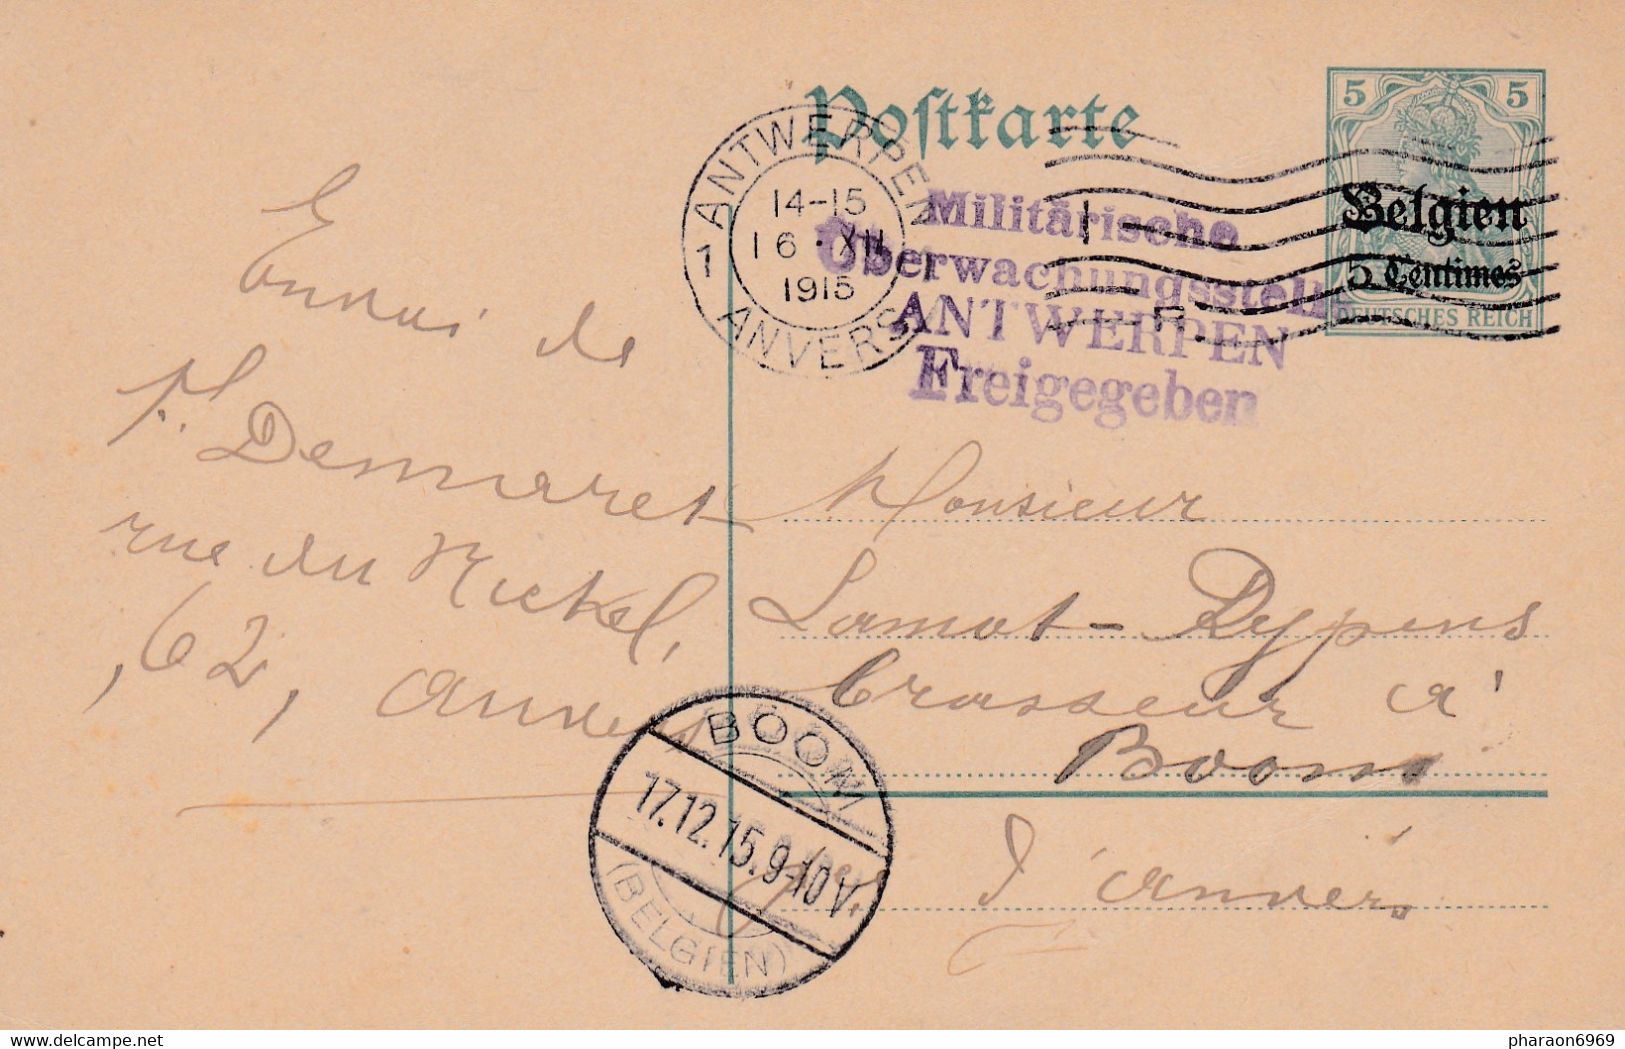 Postkarte
5 5
Belgien
5 Centimes
DEUTSCHES REICH
ANTWERPEN
14-15
16·XII
1915
1 ANVERS 1
Militärische
Überwachungsstelle
ANTWERPEN
Freigegeben
Envoi de
P. Demaret
rue du Nickel,
62, Anvers
Monsieur
Lamot-Rypens
Brasseur à
Boom
d'Anvers
BOOM
17.12.15.9-10V.
(BELGIEN)
www.delcampe.net
pharaon6969